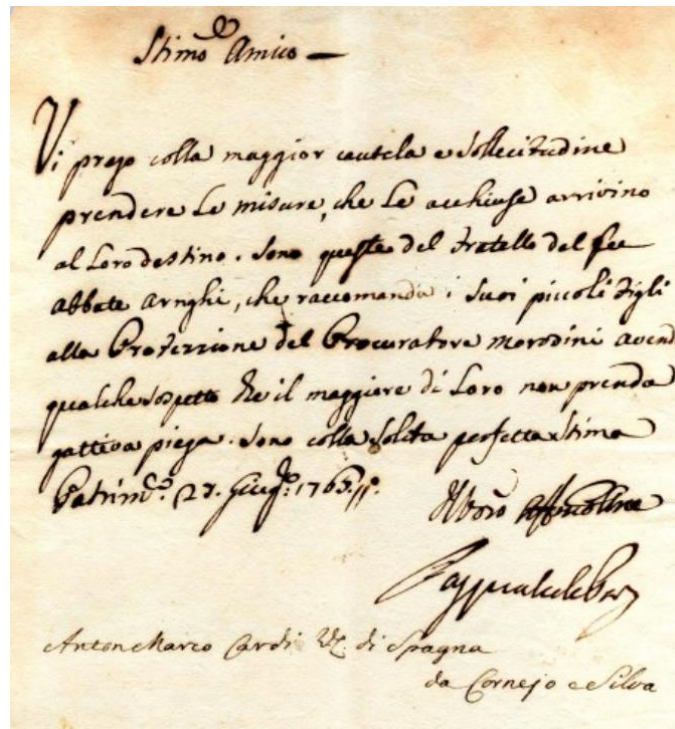 Stimo Amico —
Vi prego colla maggior cautela e sollecitudine
prendere le misure, che le acchiuse arrivino
al Loro destino. Sono queste del fratello del fu
Abbate Arnghi, che raccomanda i suoi piccoli figli
alla Protezzione del Procuratore Morosini avend
qualche sospetto che il maggiore di Loro non prenda
gattiva piega. Sono colla solita perfetta stima
Patrim.o 27. Giug.o 1765.
Il Vostro
Pasquale de
Anton Marco Cardi di Spagna
da Cornejo e Silva